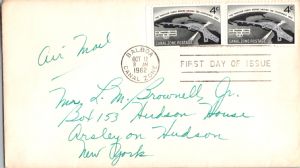 4¢ 4¢
CANAL ZONE POSTAGE CANAL ZONE POSTAGE
Air Mail
BALBOA
OCT 12
1962
CANAL ZONE
FIRST DAY OF ISSUE
May L. M. Brownell, Jr.
Box 153 Hudson House
Arsley on Hudson
New York